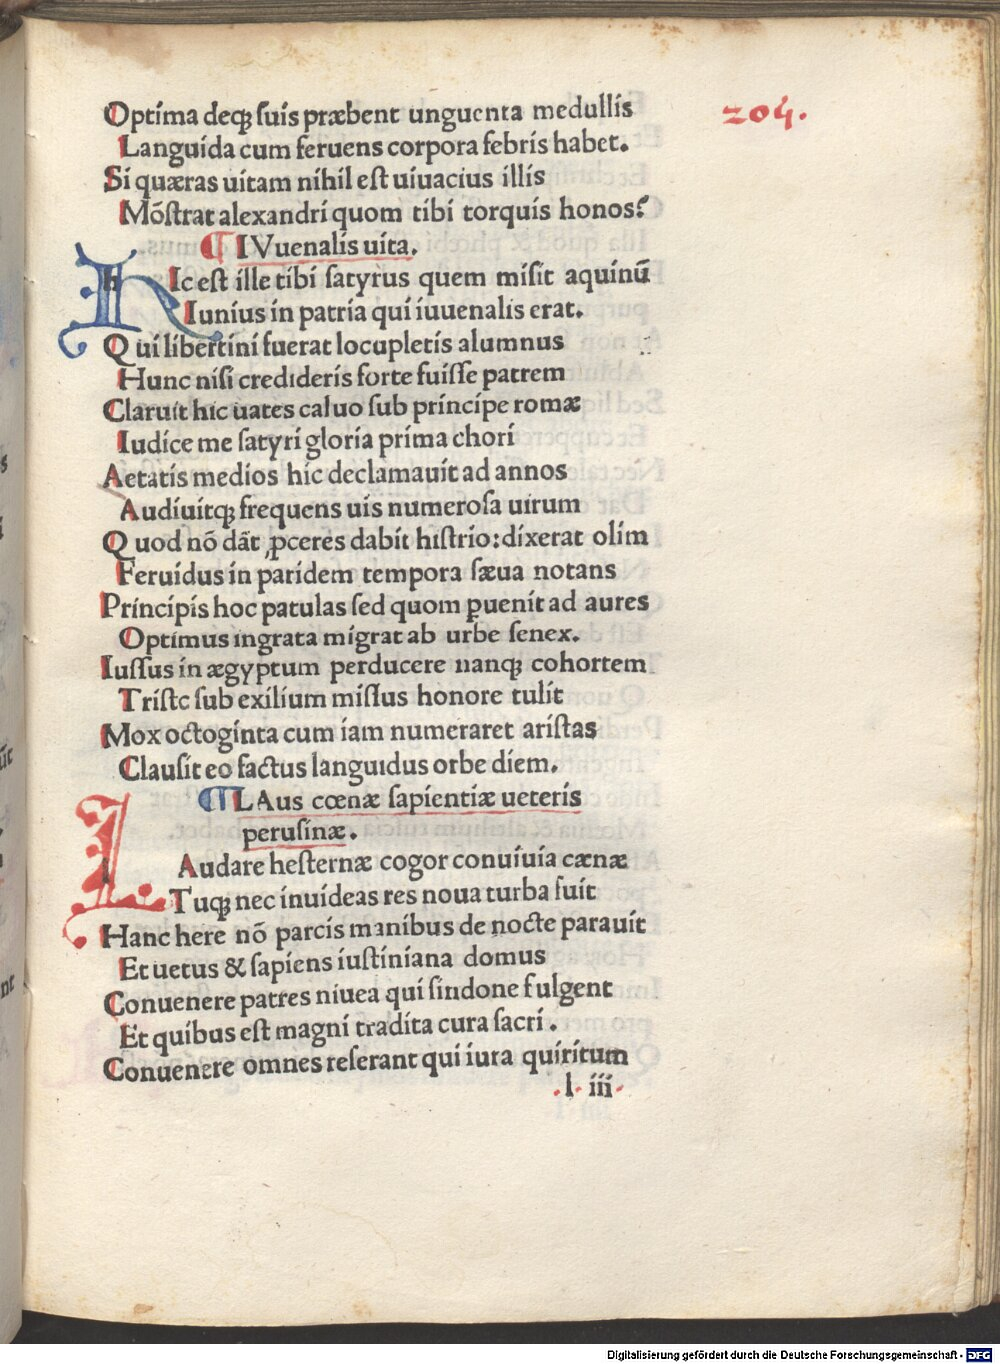 204.
Optima deqꝫ ſuis præbent unguenta medullis
Languida cum feruens corpora febris habet.
Si quæras uitam nihil eſt uiuacius illis
Mōſtrat alexandri quom tibi torquis honos?
¶ IVuenalis uita.
hIc eſt ille tibi ſatyrus quem miſit aquinū
Iunius in patria qui iuuenalis erat.
Qui libertini fuerat locupletis alumnus
Hunc niſi credideris forte fuiſſe patrem
Claruit hic uates caluo ſub principe romæ
Iudice me ſatyri gloria prima chori
Aetatis medios hic declamauit ad annos
Audiuitqꝫ frequens uis numeroſa uirum
Quod nō dāt ꝓceres dabit hiſtrio: dixerat olim
Feruidus in paridem tempora ſæua notans
Principis hoc patulas ſed quom ꝑuenit ad aures
Optimus ingrata migrat ab urbe ſenex.
Iuſſus in ægyptum perducere nanqꝫ cohortem
Triſte ſub exilium miſſus honore tulit
Mox octoginta cum iam numeraret ariſtas
Clauſit eo factus languidus orbe diem.
¶ LAus cœnæ ſapientiæ ueteris
peruſinæ.
lAudare heſternæ cogor conuiuia cænæ
Tuqꝫ nec inuideas res noua turba fuit
Hanc here nō parcis manibus de nocte parauit
Et uetus & ſapiens iuſtiniana domus
Conuenere patres niuea qui ſindone fulgent
Et quibus eſt magni tradita cura ſacri.
Conuenere omnes referant qui iura quiritum
.l. iii.
Digitalisierung gefördert durch die Deutsche Forschungsgemeinschaft - DFG